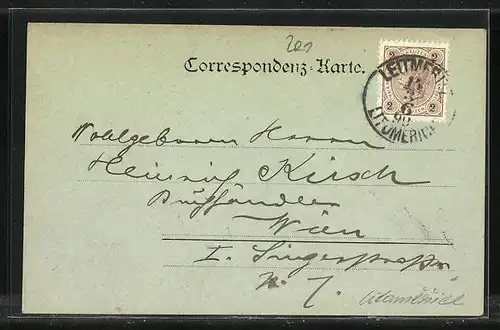 201
Correspondenz-Karte.
2 2
LEITMERI
11
6
99
LITOMĚŘICE
Wohlgeboren Herrn
Heinrich Kirsch
Buchhändler
Wien
I. Singerstrasse
N. 7.
Litoměřice